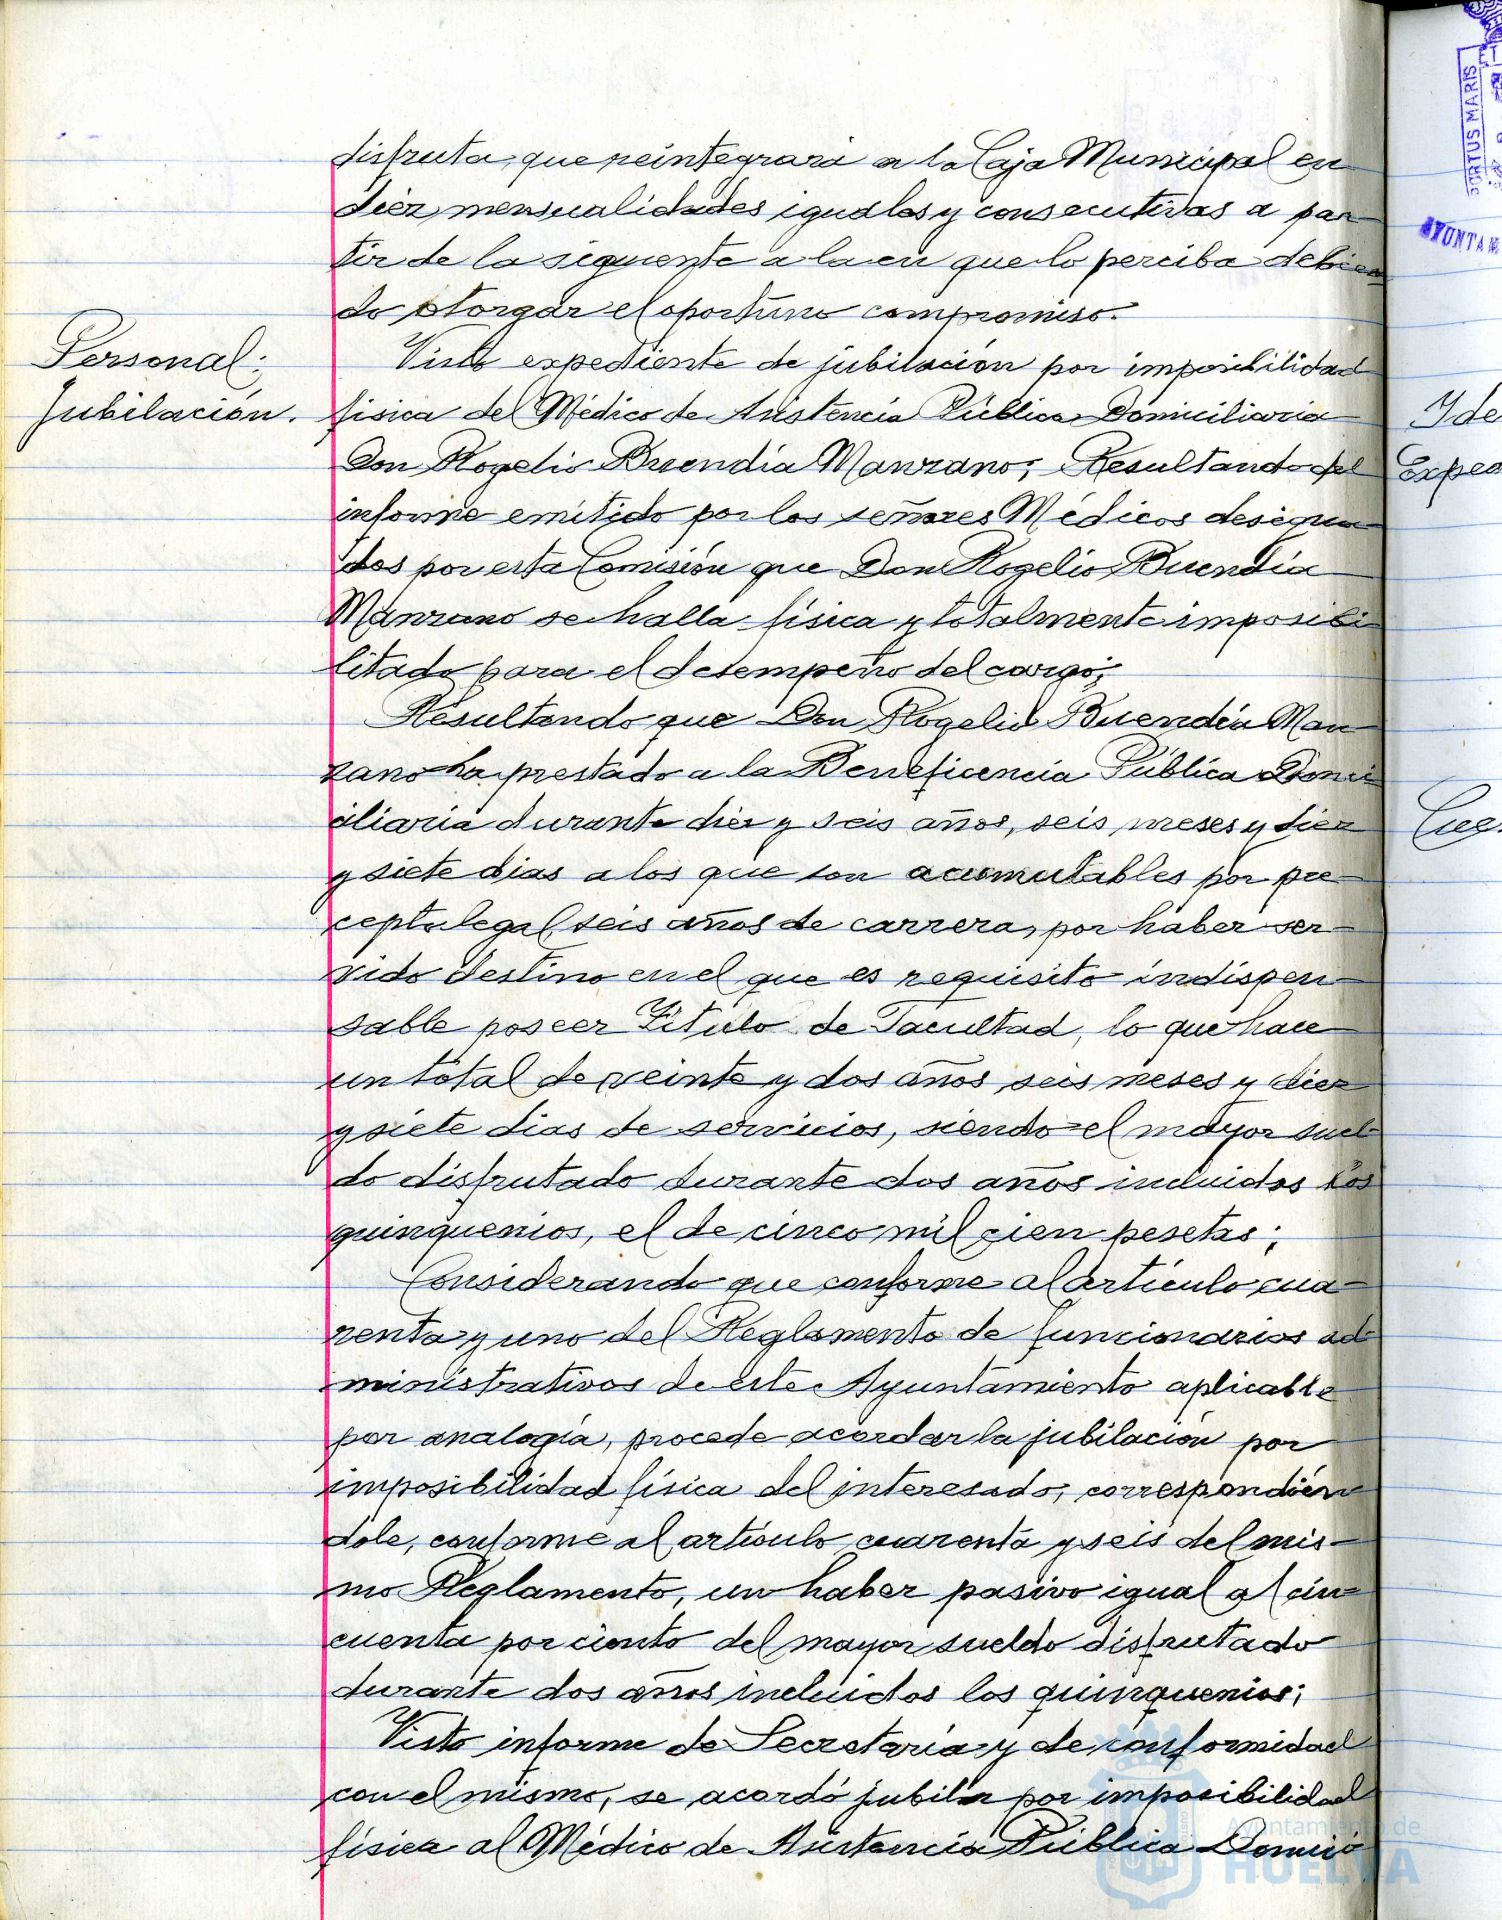 disfruta, que reintegrará a la Caja Municipal en
diez mensualidades iguales y consecutivas a par-
tir de la siguiente a la en que lo perciba debien-
do otorgar el oportuno compromiso.
Personal:
Jubilación.
Visto expediente de jubilación por imposibilidad
física del Médico de Asistencia Pública Domiciliaria
Don Rogelio Buendía Manzano; Resultando del
informe emitido por los señores Médicos designa-
dos por esta Comisión que Don Rogelio Buendía
Manzano se halla física y totalmente imposibi-
litado para el desempeño del cargo;
Resultando que Don Rogelio Buendía Man-
zano ha prestado a la Beneficencia Pública Domi-
ciliaria durante diez y seis años, seis meses y diez
y siete dias a los que son acumulables por pre-
cepto legal, seis años de carrera, por haber ser-
vido destino en el que es requisito indispen-
sable poseer Título de Facultad, lo que hace
un total de veinte y dos años seis meses y diez
y siete dias de servicios, siendo el mayor suel-
do disfrutado durante dos años incluidos los
quinquenios, el de cinco mil cien pesetas;
Considerando que conforme al artículo cua-
renta y uno del Reglamento de funcionarios ad-
ministrativos de este Ayuntamiento aplicable
por analogía, procede acordar la jubilación por
imposibilidad física del interesado, correspondién-
dole, conforme al artículo cuarenta y seis del mis-
mo Reglamento, un haber pasivo igual al cin-
cuenta por ciento del mayor sueldo disfrutado
durante dos años incluidos los quinquenios;
Visto informe de Secretaría y de conformidad
con el mismo, se acordó jubilar por imposibilidad
física al Médico de Asistencia Pública Domici
PORTUS MARIS
AYUNTAM
Ide
Exped
Ayuntamiento de
HUELVA